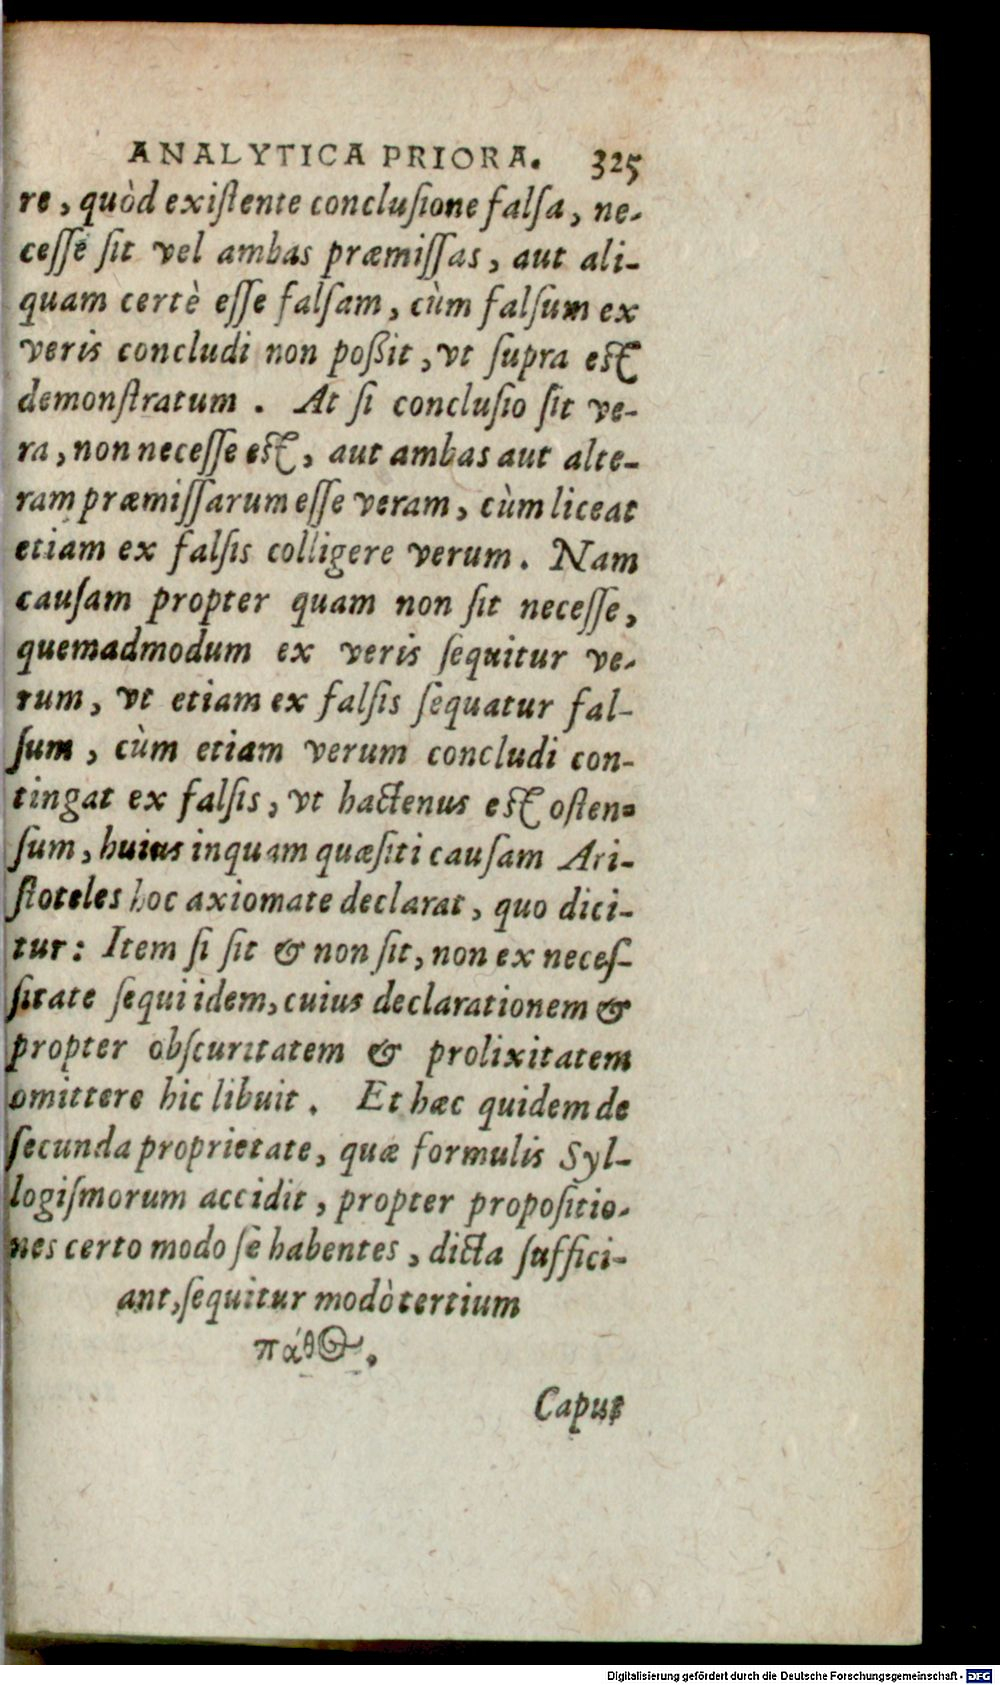 ANALYTICA PRIORA. 325
re, quòd existente conclusione falsa, ne-
cesse sit vel ambas præmissas, aut ali-
quam certè esse falsam, cùm falsum ex
veris concludi non poßit, vt supra est
demonstratum. At si conclusio sit ve-
ra, non necesse est, aut ambas aut alte-
ram præmissarum esse veram, cùm liceat
etiam ex falsis colligere verum. Nam
causam propter quam non sit necesse,
quemadmodum ex veris sequitur ve-
rum, vt etiam ex falsis sequatur fal-
sum, cùm etiam verum concludi con-
tingat ex falsis, vt hactenus est osten-
sum, huius inquam quæsiti causam Ari-
stoteles hoc axiomate declarat, quo dici-
tur: Item si sit & non sit, non ex neces-
sitate sequi idem, cuius declarationem &
propter obscuritatem & prolixitatem
omittere hic libuit. Et hæc quidem de
secunda proprietate, quæ formulis Syl-
logismorum accidit, propter propositio-
nes certo modo se habentes, dicta suffici-
ant, sequitur modò tertium
πάθος.
Caput
Digitalisierung gefördert durch die Deutsche Forschungsgemeinschaft - DFG